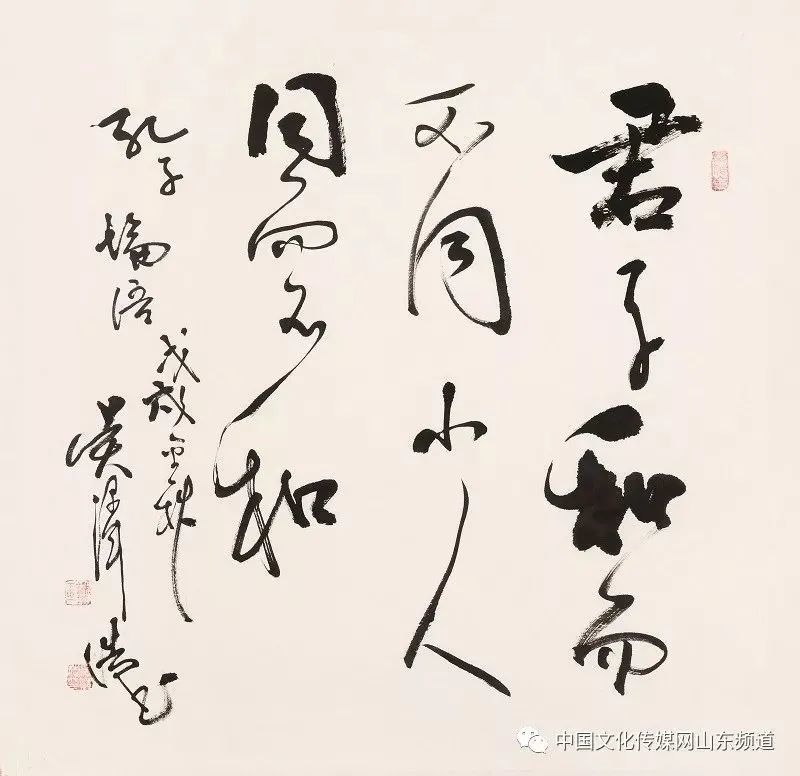 君子和而
不同小人
同而不和
孔子論語
戊戌金秋
吴泽浩书
中国文化传媒网山东频道